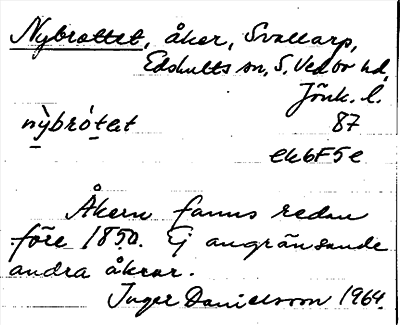 Nybrottet, åker, Svallarp,
Edshults sn, S. Vedbo hd,
Jönk. l.
nỳbrótat 87
ek6F5e
Åkern fanns redan
före 1850. Ej angränsande
andra åkrar.
Inger Danielsson 1964.